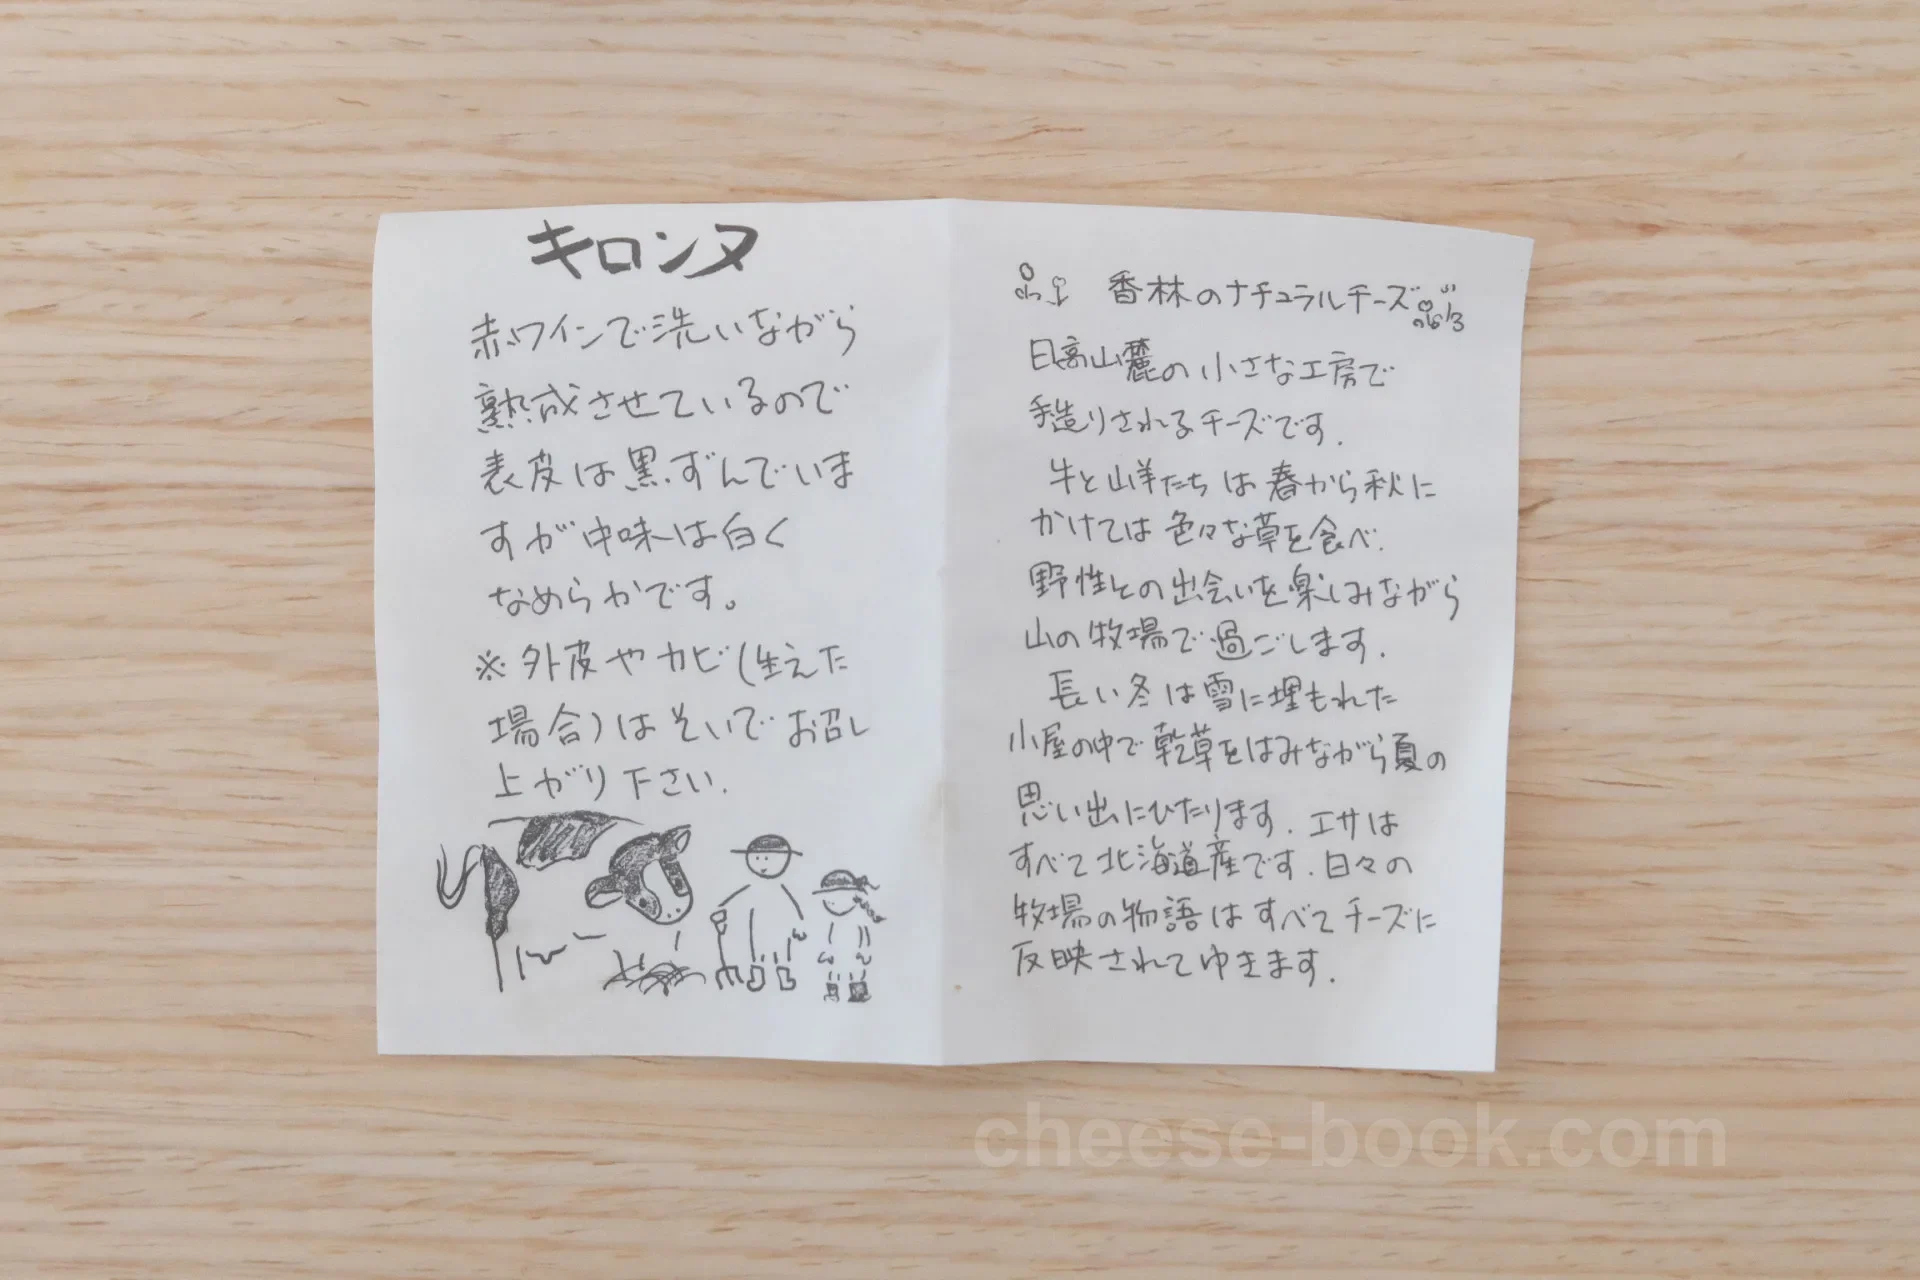 キロンヌ
赤ワインで洗いながら
熟成させているので
表皮は黒ずんでいま
すが中味は白く
なめらかです。
※外皮やカビ(生えた
場合)はそいでお召し
上がり下さい.
香林のナチュラルチーズ
日高山麓の小さな工房で
手造りされるチーズです.
牛と山羊たちは春から秋に
かけては色々な草を食べ.
野性との出会いを楽しみながら
山の牧場で過ごします.
長い冬は雪に埋もれた
小屋の中で乾草をはみながら夏の
思い出にひたります. エサは
すべて北海道産です. 日々の
牧場の物語はすべてチーズに
反映されてゆきます.
cheese-book.com